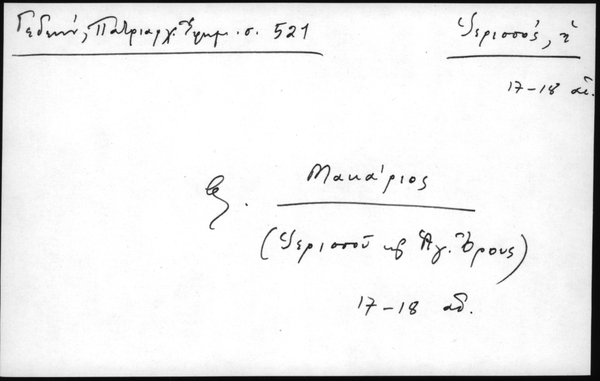 Γεδεών, Πατριαρχ. Ἐφημ. σ. 521
Ἱερισσός, ἡ
17-18 αἰ.
Μακάριος
(Ἱερισσοῦ κ Ἁγ. Ὄρους)
17-18 αἰ.